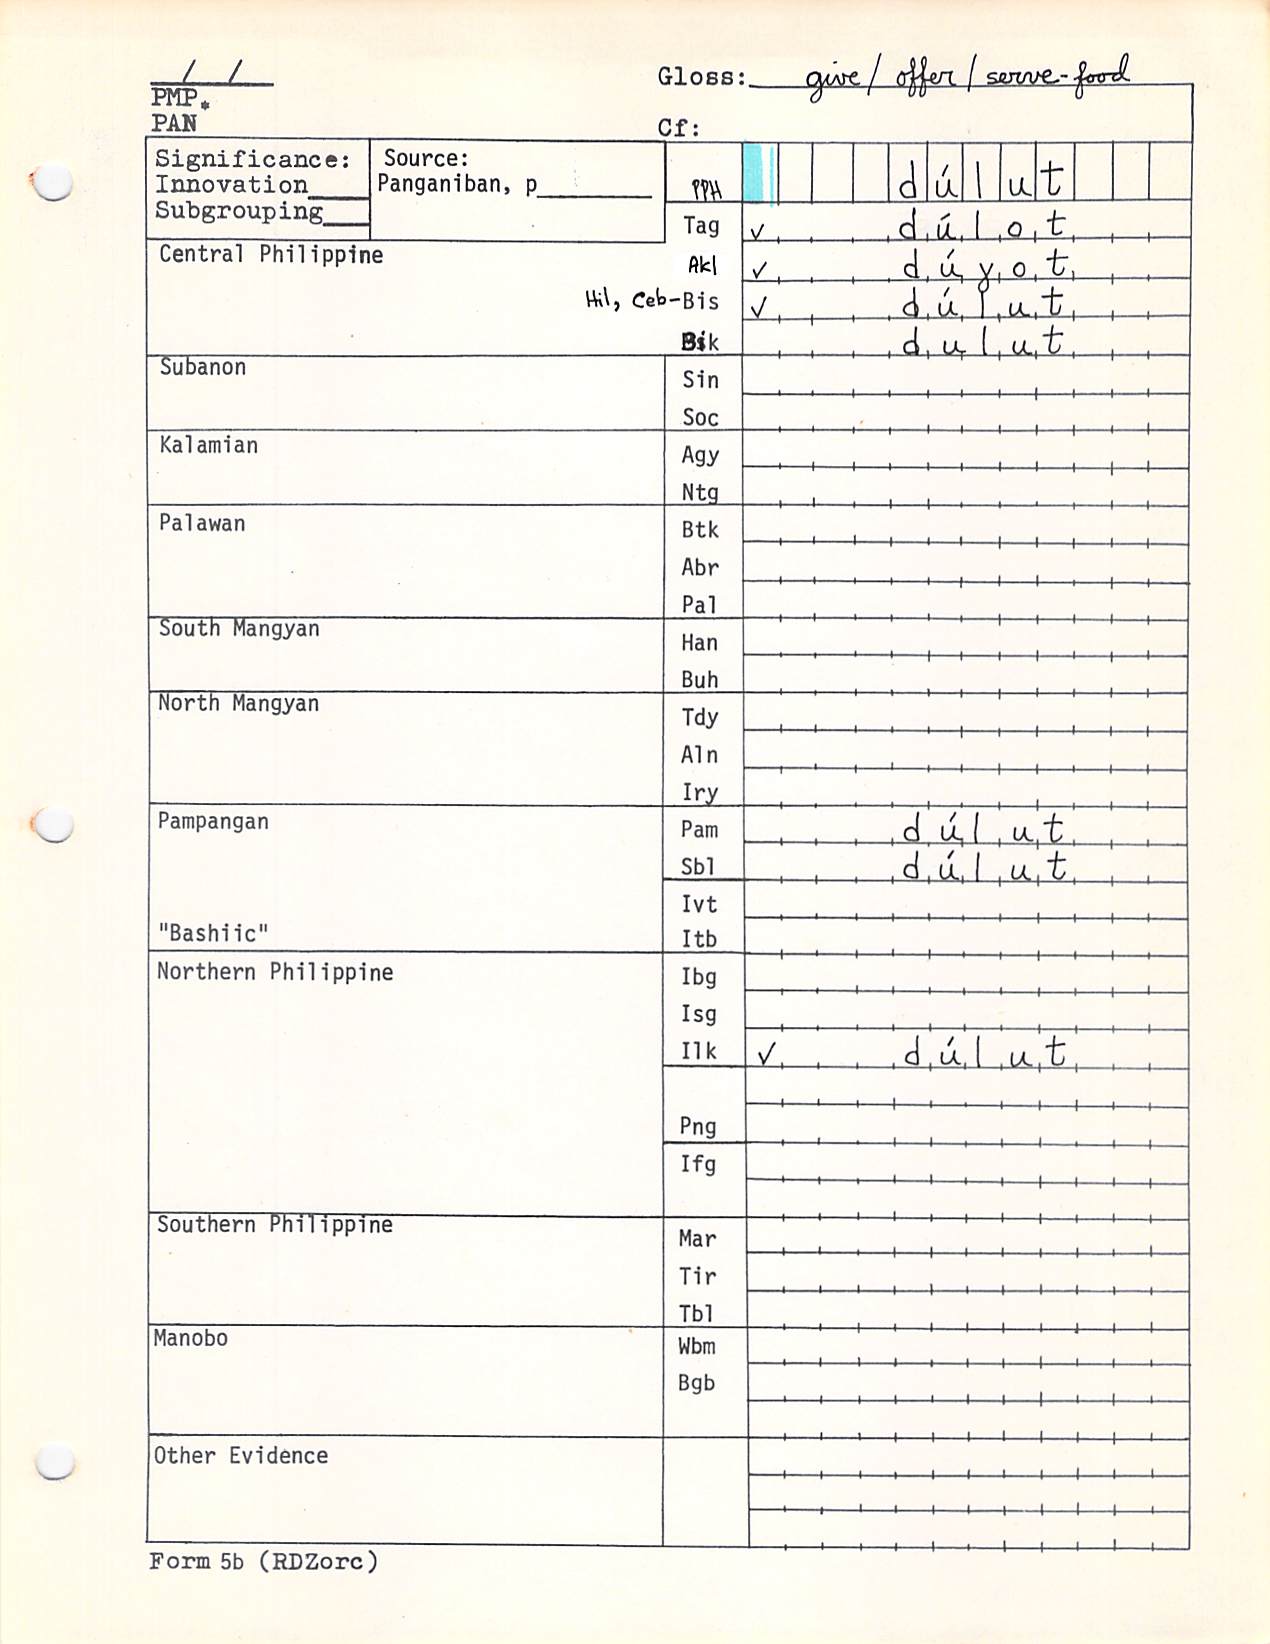 / /
Gloss: give / offer / serve-food
PMP.
PAN
Cf:
Significance:
Innovation____
Subgrouping____
Source:
Panganiban, p________
PPH dúlut
Tag ✓ dúlot
Central Philippine
Akl ✓ dúyot
Hil, Ceb-Bis ✓ dúlut
Bik dulut
Subanon
Sin
Soc
Kalamian
Agy
Ntg
Palawan
Btk
Abr
Pal
South Mangyan
Han
Buh
North Mangyan
Tdy
Aln
Iry
Pampangan
Pam dúlut
Sbl dúlut
Ivt
"Bashiic"
Itb
Northern Philippine
Ibg
Isg
Ilk ✓ dúlut
Png
Ifg
Southern Philippine
Mar
Tir
Tbl
Manobo
Wbm
Bgb
Other Evidence
Form 5b (RDZorc)